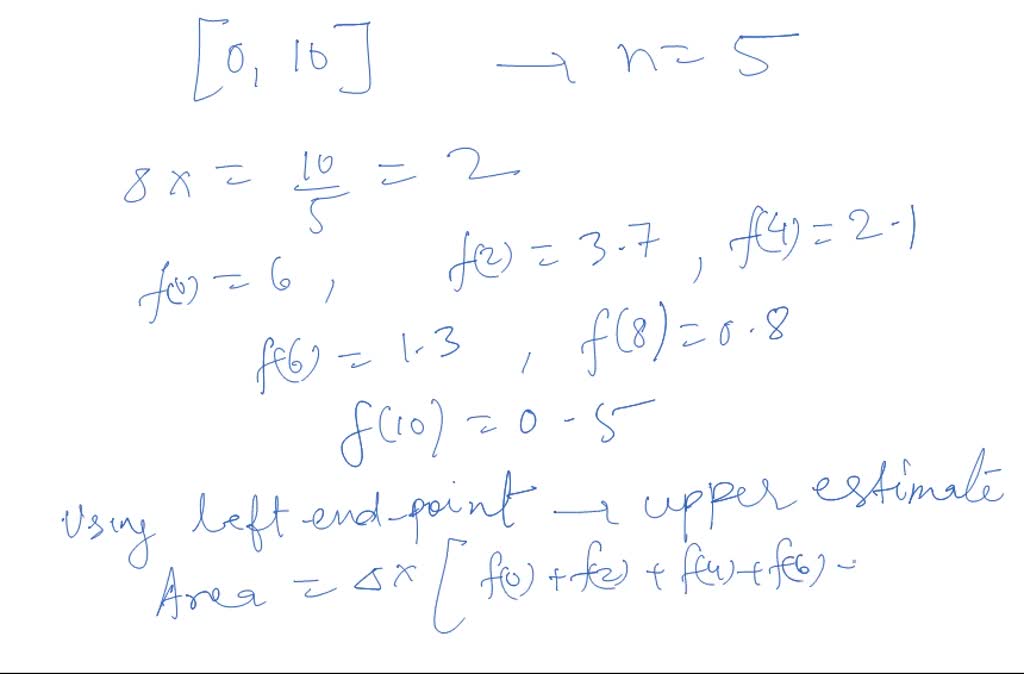 [0, 10] → n = 5
δx = 10/5 = 2
f(0) = 6, f(2) = 3.7, f(4) = 2.1
f(6) = 1.3, f(8) = 0.8
f(10) = 0.5
Using left end-point → upper estimate
Area = Δx [ f(0) + f(2) + f(4) + f(6) -